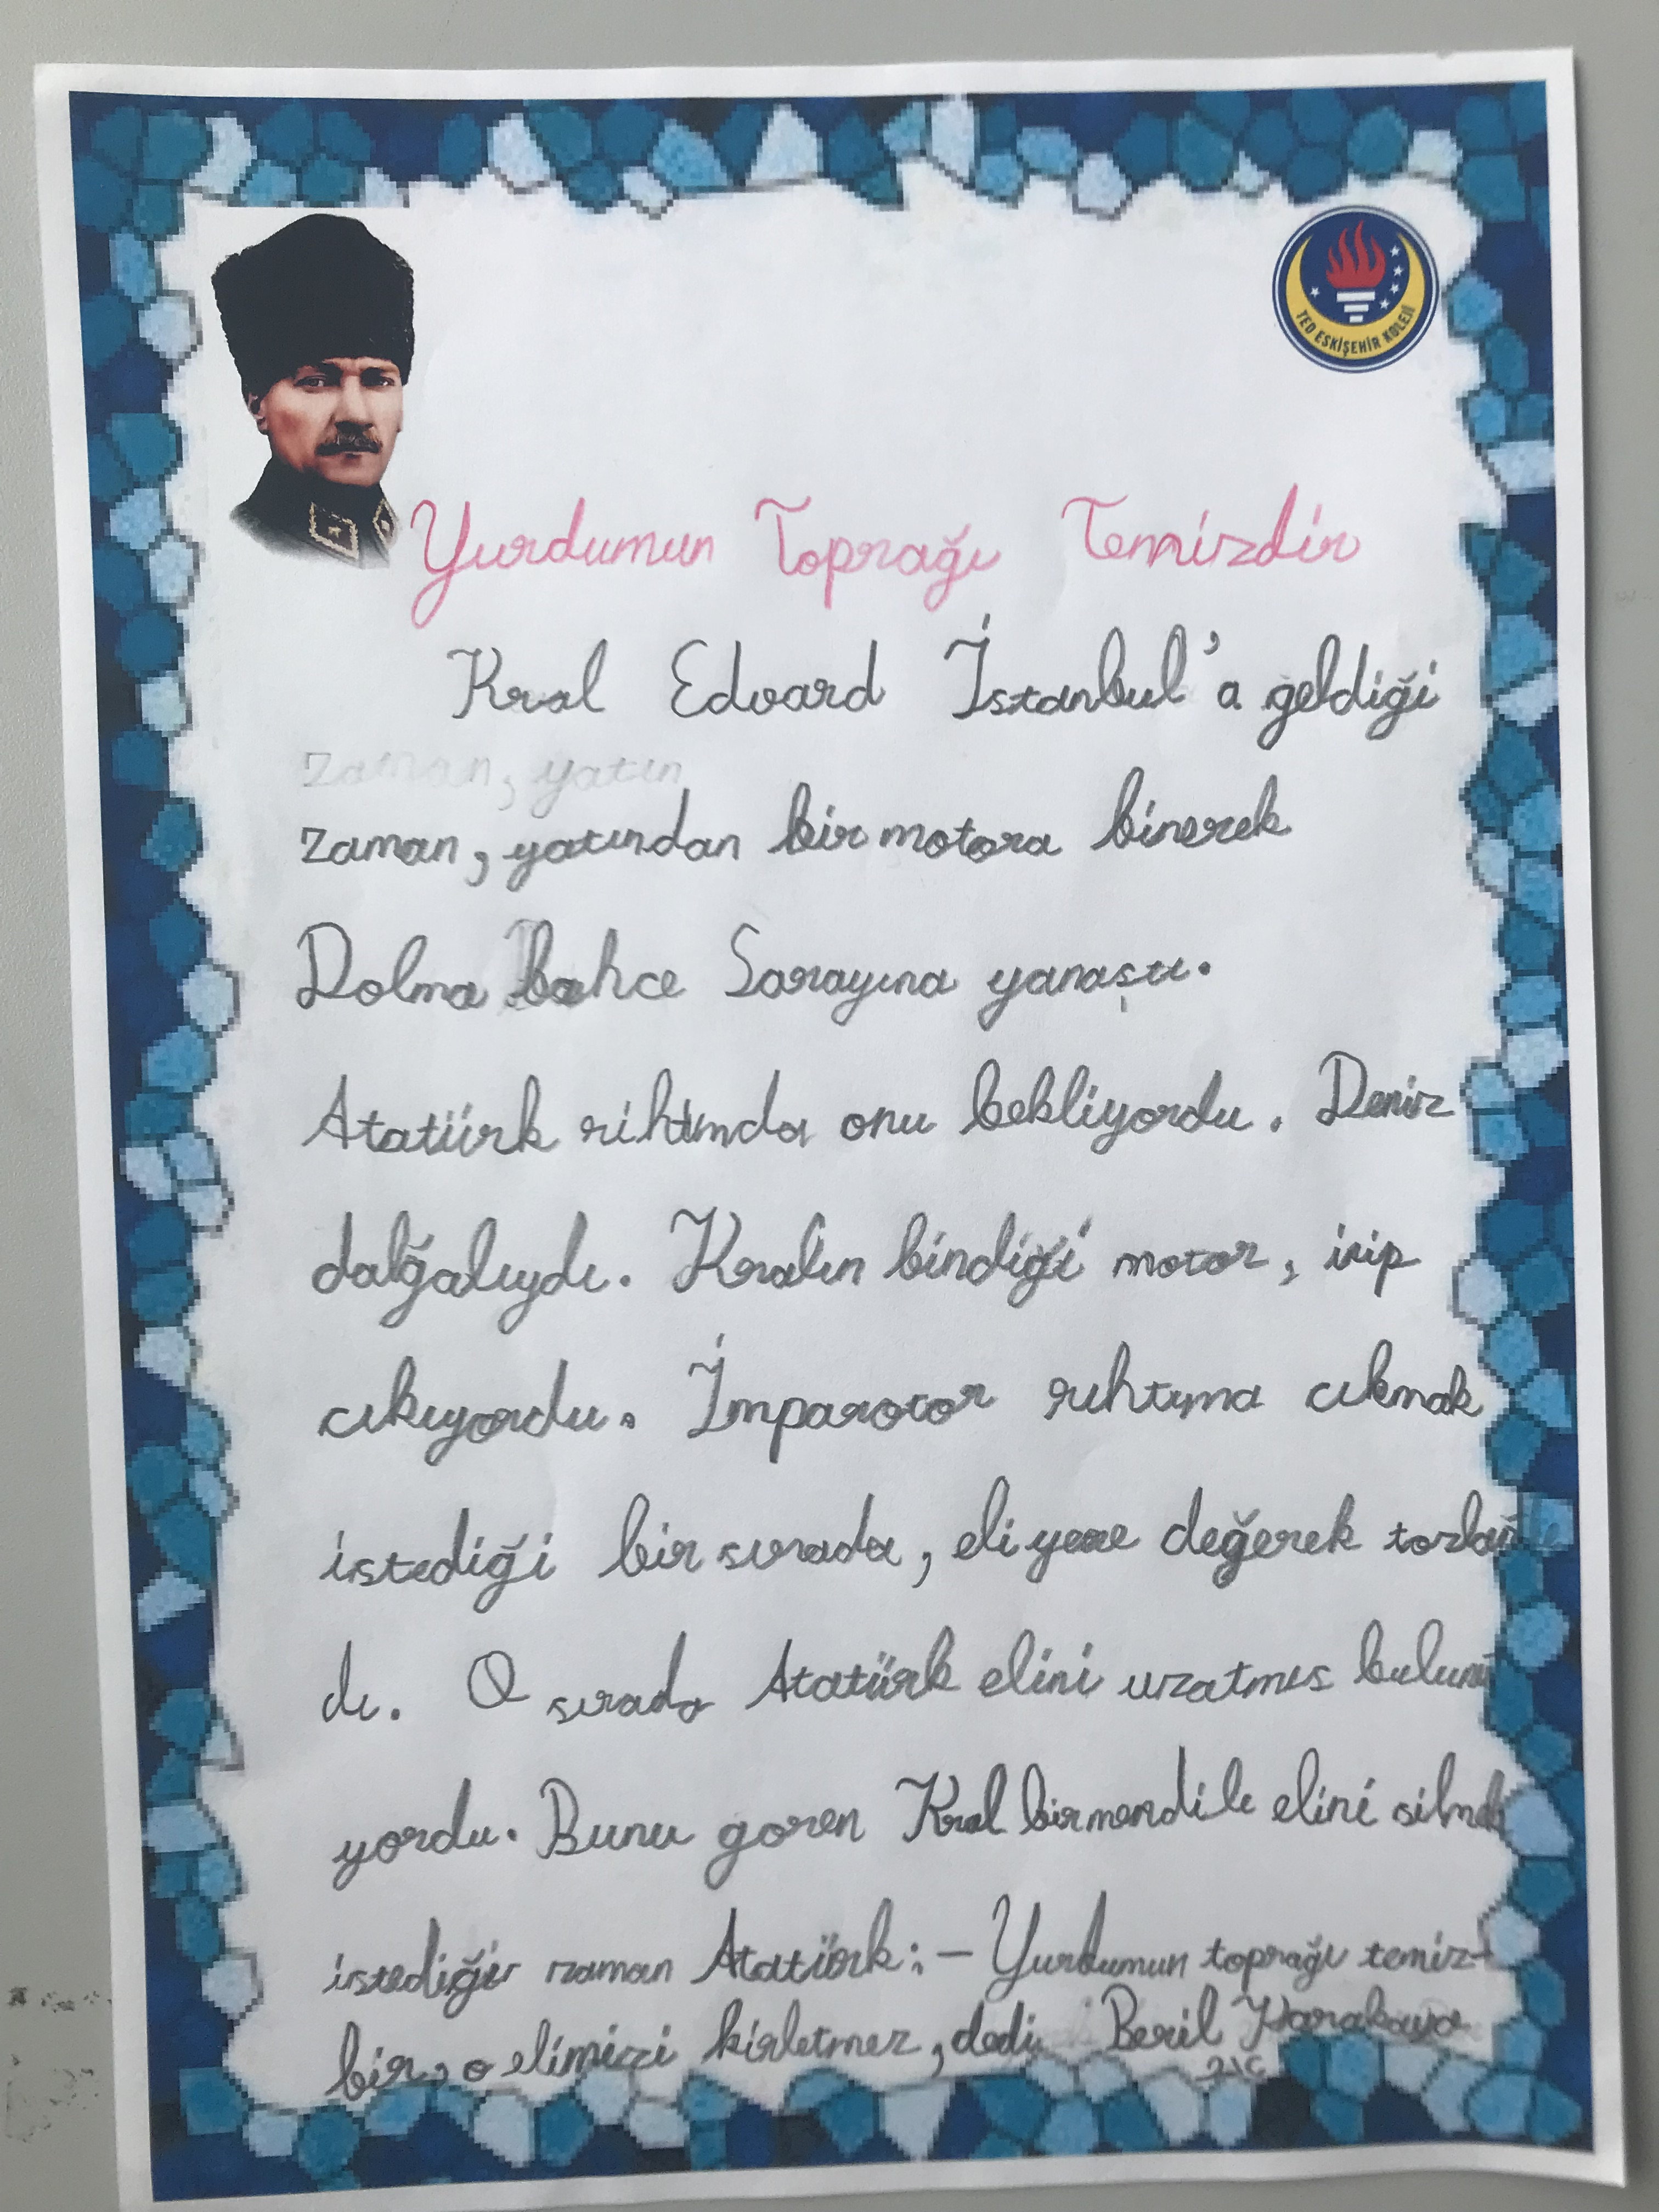 TED ESKİŞEHİR KOLEJİ
Yurdumun Toprağı Temizdir
Kral Edvard İstanbul'a geldiği
zaman, yatın
zaman, yatından bir motora binerek
Dolma bahce Sarayına yanaştı.
Atatürk rıhtımda onu bekliyordu. Deniz
dalğalıydı. Kralın bindiği motor, inip
cıkıyordu. İmparotor rıhtıma cıkmak
istediği bir sırada, eli yere değerek tozlan
dı. O sırada Atatürk elini uzatmıs bulunu
yordu. Bunu goren Kral bir mendile elini silmek
istediği zaman Atatürk: - Yurdumun toprağı temiz-
bir, o elimizi kirletmez, dedi. Beril Karakaya
2/C